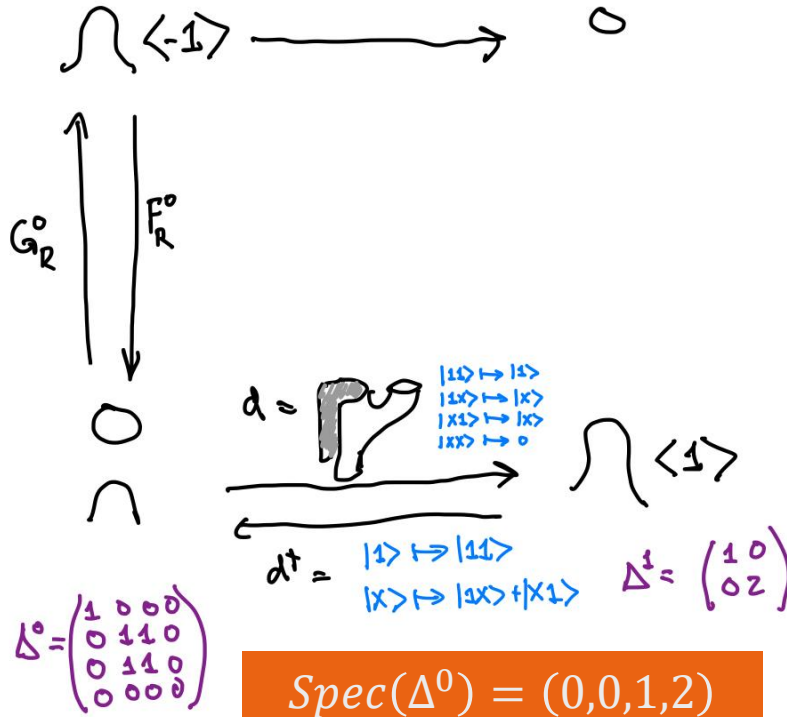 <-1>
G_R^0
F_R^0
d =
|11> ↦ |1>
|1X> ↦ |X>
|X1> ↦ |X>
|XX> ↦ 0
<1>
d† =
|1> ↦ |11>
|X> ↦ |1X> + |X1>
Δ^1 = (1 0
0 2)
Δ^0 = (1 0 0 0
0 1 1 0
0 1 1 0
0 0 0 0)
Spec(Δ^0) = (0,0,1,2)